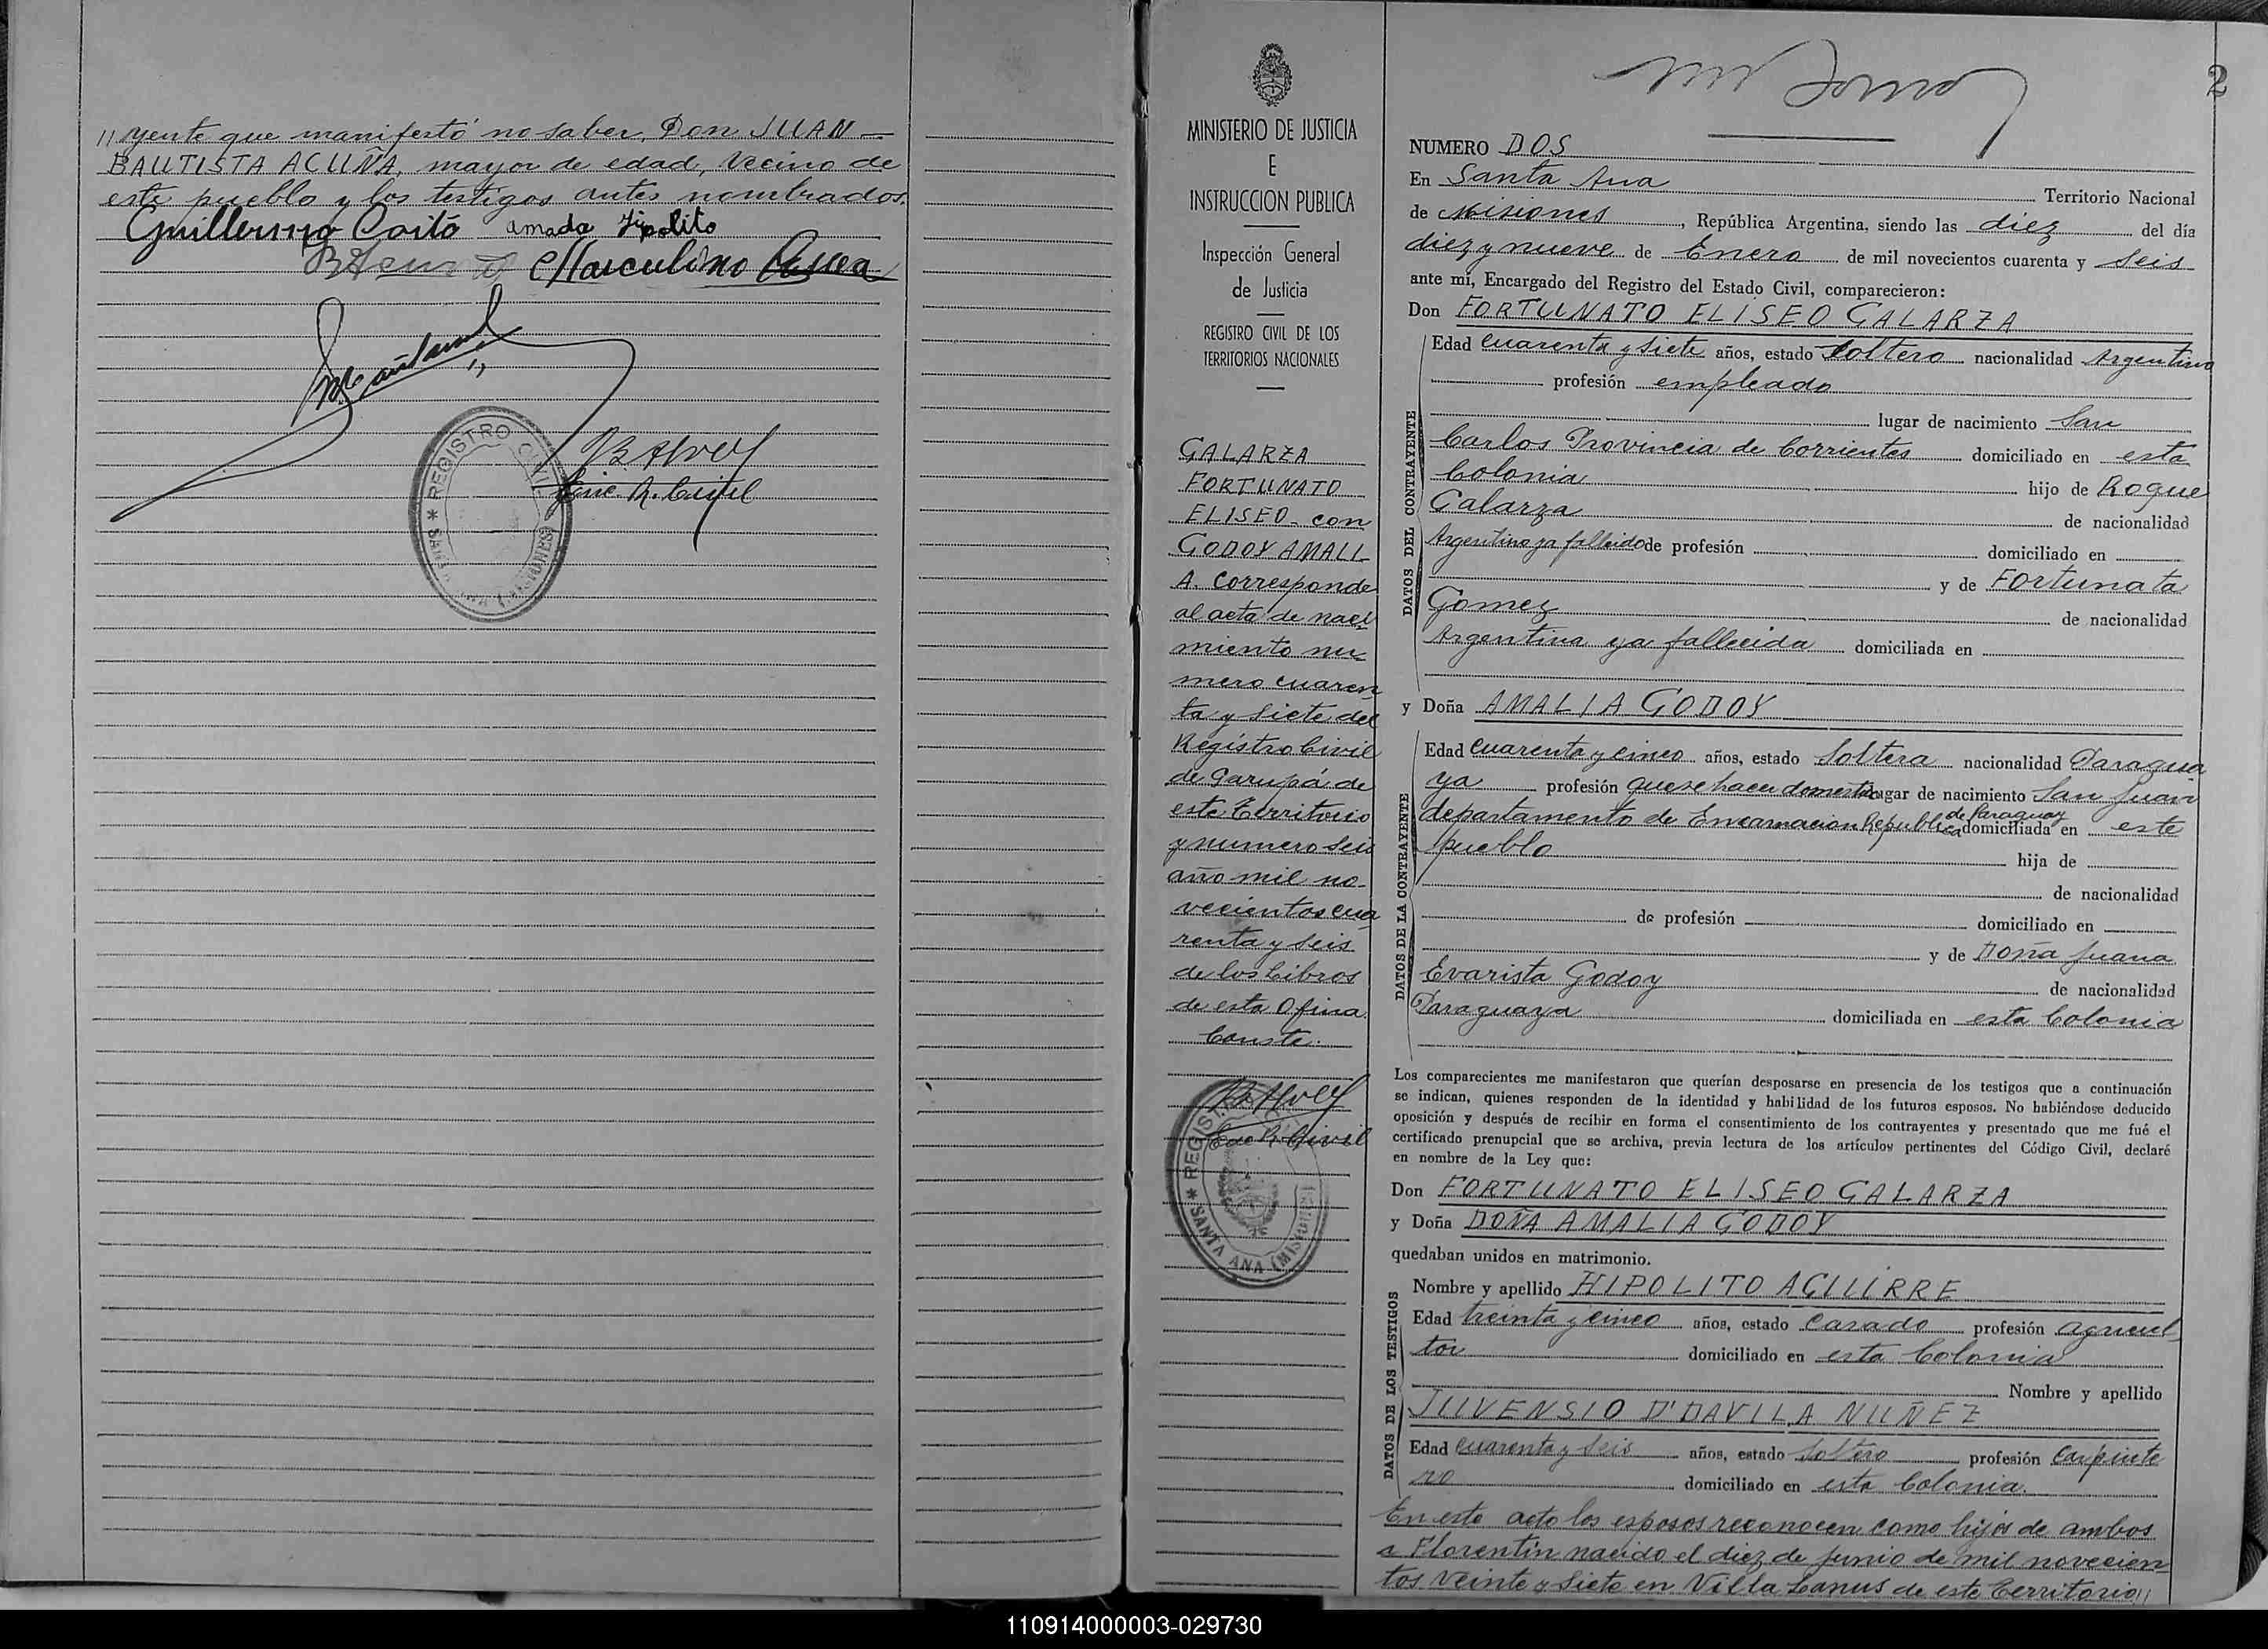 // yente que manifestó no saber, Don JUAN
BAUTISTA ACUÑA, mayor de edad, vecino de
este pueblo y los testigos antes nombrados.
Guillermo amada Ypolito
Marculino
REGISTRO CIVIL
SANTA ANA (MISIONES)
Enc. R. Civil
MINISTERIO DE JUSTICIA
E
INSTRUCCION PUBLICA
Inspección General
de Justicia
REGISTRO CIVIL DE LOS
TERRITORIOS NACIONALES
GALARZA
FORTUNATO
ELISEO - con
GODOY AMALI_
A. Corresponde
al acta de naci_
miento nu_
mero cuaren_
ta y siete del
Registro Civil
de Garupá de
este Territorio
y numero seis
año mil no_
vecientos cua_
renta y seis
de los Libros
de esta Ofina.
Conste.
Enc R. Civil
REGISTRO CIVIL
SANTA ANA (MISIONES)
2
NUMERO DOS
En Santa Ana Territorio Nacional
de Misiones, República Argentina, siendo las diez del día
diez y nueve de Enero de mil novecientos cuarenta y seis
ante mí, Encargado del Registro del Estado Civil, comparecieron:
Don FORTUNATO ELISEO GALARZA
DATOS DEL CONTRAYENTE
Edad cuarenta y siete años, estado soltero nacionalidad Argentino
profesión empleado
lugar de nacimiento San
Carlos Provincia de Corrientes domiciliado en esta
Colonia hijo de Roque
Galarza de nacionalidad
Argentino ya fallecido de profesión domiciliado en
y de Fortunata
Gomez de nacionalidad
Argentina ya fallecida domiciliada en
y Doña AMALIA GODOY
DATOS DE LA CONTRAYENTE
Edad cuarenta y cinco años, estado soltera nacionalidad Paragua
ya profesión quese hacer domestico lugar de nacimiento San Juan
departamento de Encarnacion Republica de Paraguay domiciliada en este
pueblo hija de
de nacionalidad
de profesión domiciliado en
y de Doña Juana
Evarista Godoy de nacionalidad
Paraguaya domiciliada en esta Colonia
Los comparecientes me manifestaron que querían desposarse en presencia de los testigos que a continuación
se indican, quienes responden de la identidad y habilidad de los futuros esposos. No habiéndose deducido
oposición y después de recibir en forma el consentimiento de los contrayentes y presentado que me fué el
certificado prenupcial que se archiva, previa lectura de los artículos pertinentes del Código Civil, declaré
en nombre de la Ley que:
Don FORTUNATO ELISEO GALARZA
y Doña DOÑA AMALIA GODOY
quedaban unidos en matrimonio.
DATOS DE LOS TESTIGOS
Nombre y apellido HIPOLITO AGUIRRE
Edad treinta y cinco años, estado casado profesión agricul_
tor domiciliado en esta Colonia
Nombre y apellido
JUVENSIO D'DAVILA NUÑEZ
Edad cuarenta y seis años, estado soltero profesión carpinte
ro domiciliado en esta Colonia.
En este acto los esposos reconocen como hijos de ambos
a Florentin nacido el diez de Junio de mil novecien_
tos veinte y siete en Villa Lanus de este Territorio //
110914000003-029730